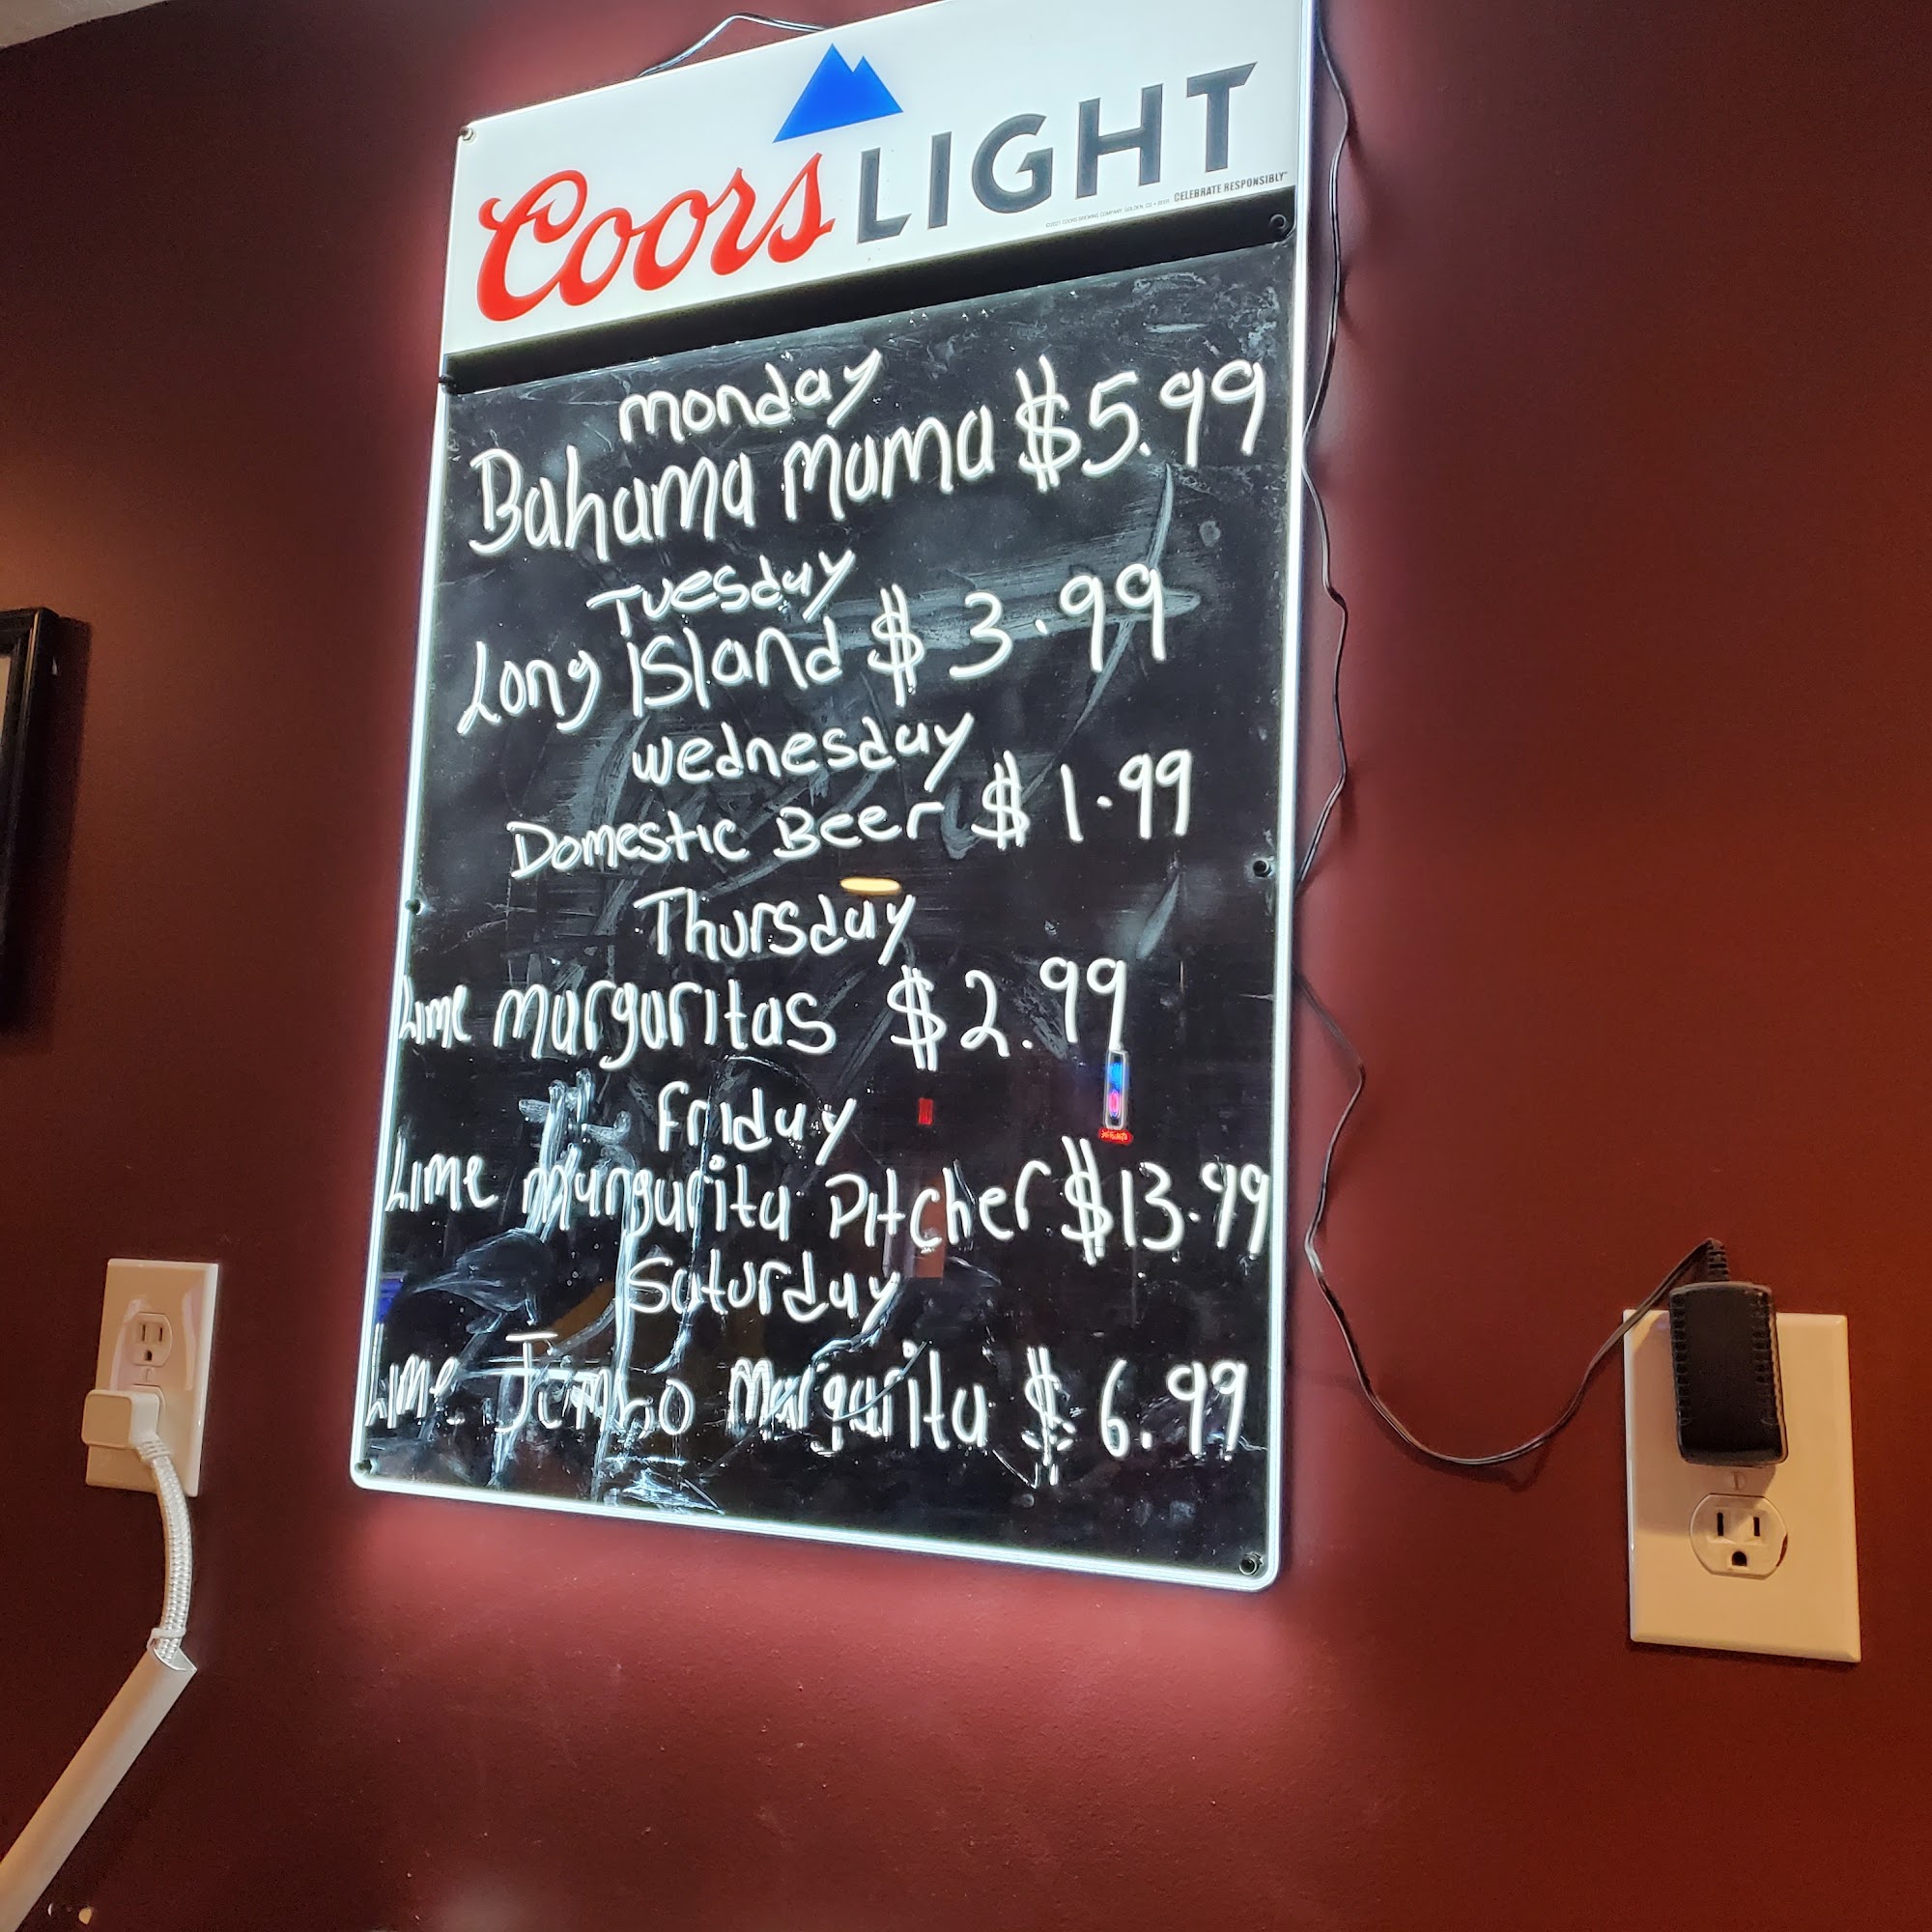 Coors LIGHT
CELEBRATE RESPONSIBLY
monday
Bahama mama $5.99
Tuesday
Long Island $3.99
wednesday
Domestic Beer $1.99
Thursday
Lime margaritas $2.99
friday
Lime margarita Pitcher $13.99
Saturday
Lime Jumbo margarita $6.99